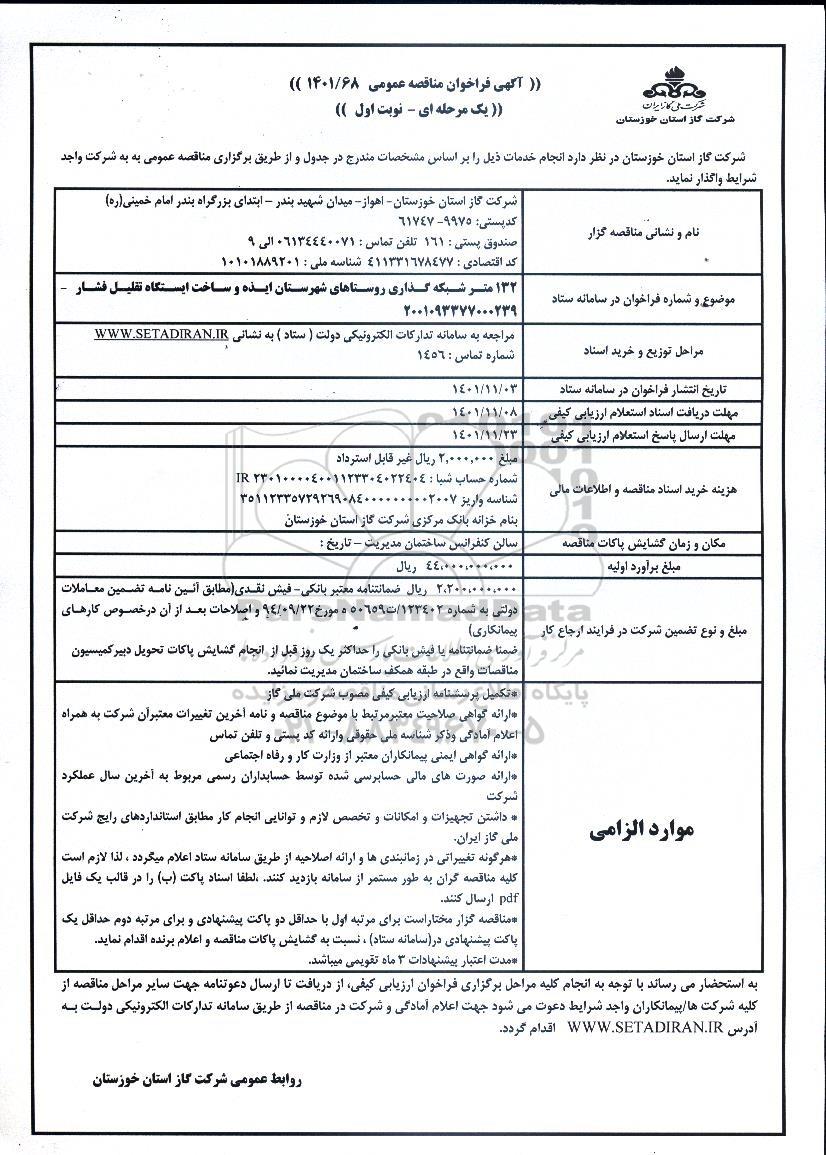 (( آگهی فراخوان مناقصه عمومی ۱۴۰۱/۶۸ ))
(( یک مرحله ای - نوبت اول ))
شرکت ملی گاز ایران
شرکت گاز استان خوزستان
شرکت گاز استان خوزستان در نظر دارد انجام خدمات ذیل را بر اساس مشخصات مندرج در جدول و از طریق برگزاری مناقصه عمومی به به شرکت واجد
شرایط واگذار نماید.
نام و نشانی مناقصه گزار
شرکت گاز استان خوزستان- اهواز- میدان شهید بندر – ابتدای بزرگراه بندر امام خمینی(ره)
کدپستی: ۹۹۷۵- ۶۱۷۴۷
صندوق پستی : ۱۶۱ تلفن تماس : ۰۶۱۳۴۴۴۰۰۷۱ الی ۹
کد اقتصادی : ۴۱۱۳۳۱۶۷۸۴۷۷ شناسه ملی : ۱۰۱۰۱۸۸۹۲۰۱
موضوع و شماره فراخوان در سامانه ستاد
۱۳۲ متر شبکه گذاری روستاهای شهرستان ایذه و ساخت ایستگاه تقلیل فشار -
۲۰۰۱۰۹۳۳۷۷۰۰۰۲۳۹
مراحل توزیع و خرید اسناد
مراجعه به سامانه تدارکات الکترونیکی دولت ( ستاد ) به نشانی WWW.SETADIRAN.IR
شماره تماس : ۱۴۵۶
تاریخ انتشار فراخوان در سامانه ستاد
۱۴۰۱/۱۱/۰۳
مهلت دریافت اسناد استعلام ارزیابی کیفی
۱۴۰۱/۱۱/۰۸
مهلت ارسال پاسخ استعلام ارزیابی کیفی
۱۴۰۱/۱۱/۲۳
هزینه خرید اسناد مناقصه و اطلاعات مالی
مبلغ ۲,۰۰۰,۰۰۰ ریال غیر قابل استرداد
شماره حساب شبا : IR ۲۳۰۱۰۰۰۰۴۰۰۱۱۲۳۳۰۴۰۲۲۴۰۴
شناسه واریز ۳۵۱۱۲۳۳۵۷۲۹۲۶۹۰۸۴۰۰۰۰۰۰۰۰۰۲۰۰۷
بنام خزانه بانک مرکزی شرکت گاز استان خوزستان
مکان و زمان گشایش پاکات مناقصه
سالن کنفرانس ساختمان مدیریت – تاریخ :
مبلغ برآورد اولیه
۴۴,۰۰۰,۰۰۰,۰۰۰ ریال
مبلغ و نوع تضمین شرکت در فرایند ارجاع کار
۲,۲۰۰,۰۰۰,۰۰۰ ریال ضمانتنامه معتبر بانکی- فیش نقدی(مطابق آئین نامه تضمین معاملات
دولتی به شماره ۱۲۳۴۰۲/ت۵۰۶۵۹ ه مورخ۹۴/۰۹/۲۲ و اصلاحات بعد از آن درخصوص کارهای
پیمانکاری)
ضمنا ضمانتنامه یا فیش بانکی را حداکثر یک روز قبل از انجام گشایش پاکات تحویل دبیرکمیسیون
مناقصات واقع در طبقه همکف ساختمان مدیریت نمائید.
موارد الزامی
*تکمیل پرسشنامه ارزیابی کیفی مصوب شرکت ملی گاز
*ارائه گواهی صلاحیت معتبرمرتبط با موضوع مناقصه و نامه آخرین تغییرات معتبرآن شرکت به همراه
اعلام آمادگی وذکر شناسه ملی حقوقی وارائه کد پستی و تلفن تماس
*ارائه گواهی ایمنی پیمانکاران معتبر از وزارت کار و رفاه اجتماعی
*ارائه صورت های مالی حسابرسی شده توسط حسابداران رسمی مربوط به آخرین سال عملکرد
شرکت
* داشتن تجهیزات و امکانات و تخصص لازم و توانایی انجام کار مطابق استانداردهای رایج شرکت
ملی گاز ایران.
*هرگونه تغییراتی در زمانبندی ها و ارائه اصلاحیه از طریق سامانه ستاد اعلام میگردد ، لذا لازم است
کلیه مناقصه گران به طور مستمر از سامانه بازدید کنند. ،لطفا اسناد پاکت (ب) را در قالب یک فایل
pdf ارسال کنند.
*مناقصه گزار مختاراست برای مرتبه اول با حداقل دو پاکت پیشنهادی و برای مرتبه دوم حداقل یک
پاکت پیشنهادی در(سامانه ستاد) ، نسبت به گشایش پاکات مناقصه و اعلام برنده اقدام نماید.
*مدت اعتبار پیشنهادات ۳ ماه تقویمی میباشد.
به استحضار می رساند با توجه به انجام کلیه مراحل برگزاری فراخوان ارزیابی کیفی، از دریافت تا ارسال دعوتنامه جهت سایر مراحل مناقصه از
کلیه شرکت ها/پیمانکاران واجد شرایط دعوت می شود جهت اعلام آمادگی و شرکت در مناقصه از طریق سامانه تدارکات الکترونیکی دولت به
آدرس WWW.SETADIRAN.IR اقدام گردد.
روابط عمومی شرکت گاز استان خوزستان